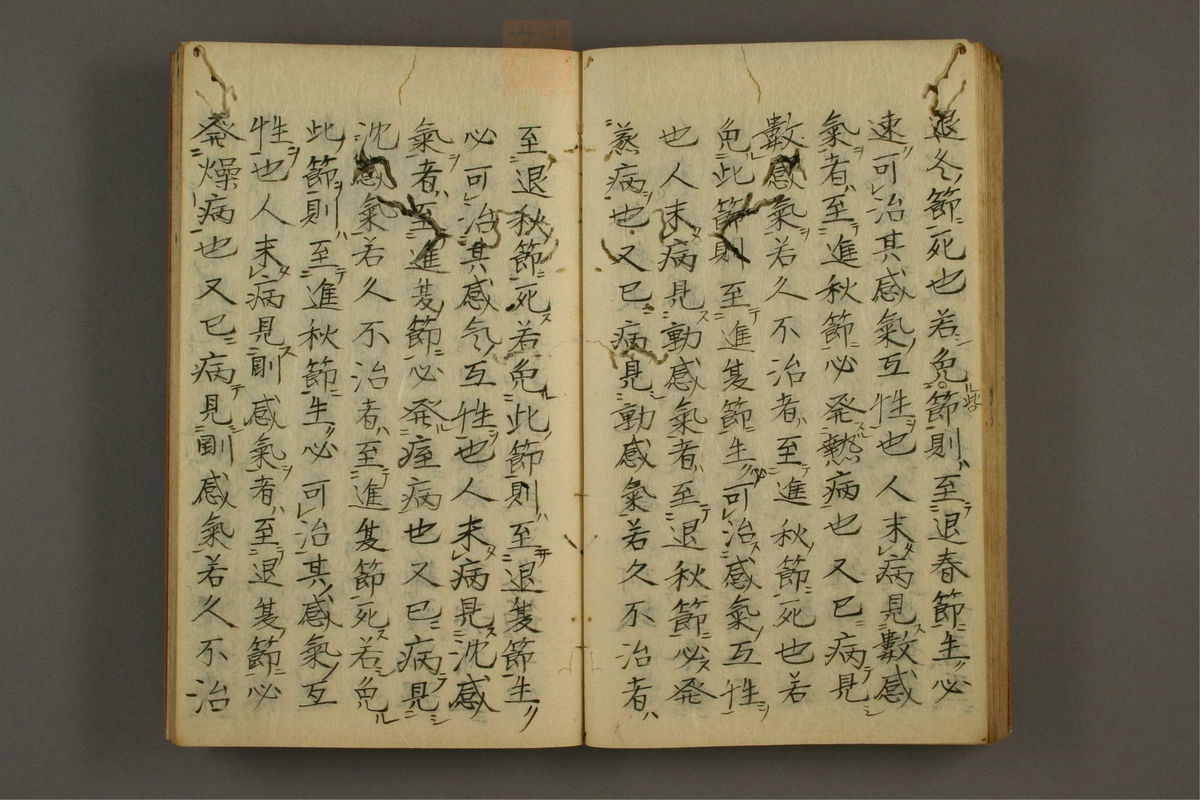 退冬節死也若免節則至退春節生必
速可治其感氣互性也人未病見數感
氣者至進秋節必発熱病也又已病見
數感氣若久不治者至進秋節死也若
免此節則至進夏節生必可治感氣互性
也人未病見動感氣者至退秋節必発
蒸病也又已病見動感氣若久不治者
至退秋節死若免此節則至退夏節生
必可治其感氣互性也人未病見沈感
氣者至進夏節必発痓病也又已病見
沈感氣若久不治者至進夏節死若免
此節則至進秋節生必可治其感氣互
性也人未病見剛感氣者至退夏節必
発燥病也又已病見剛感氣若久不治